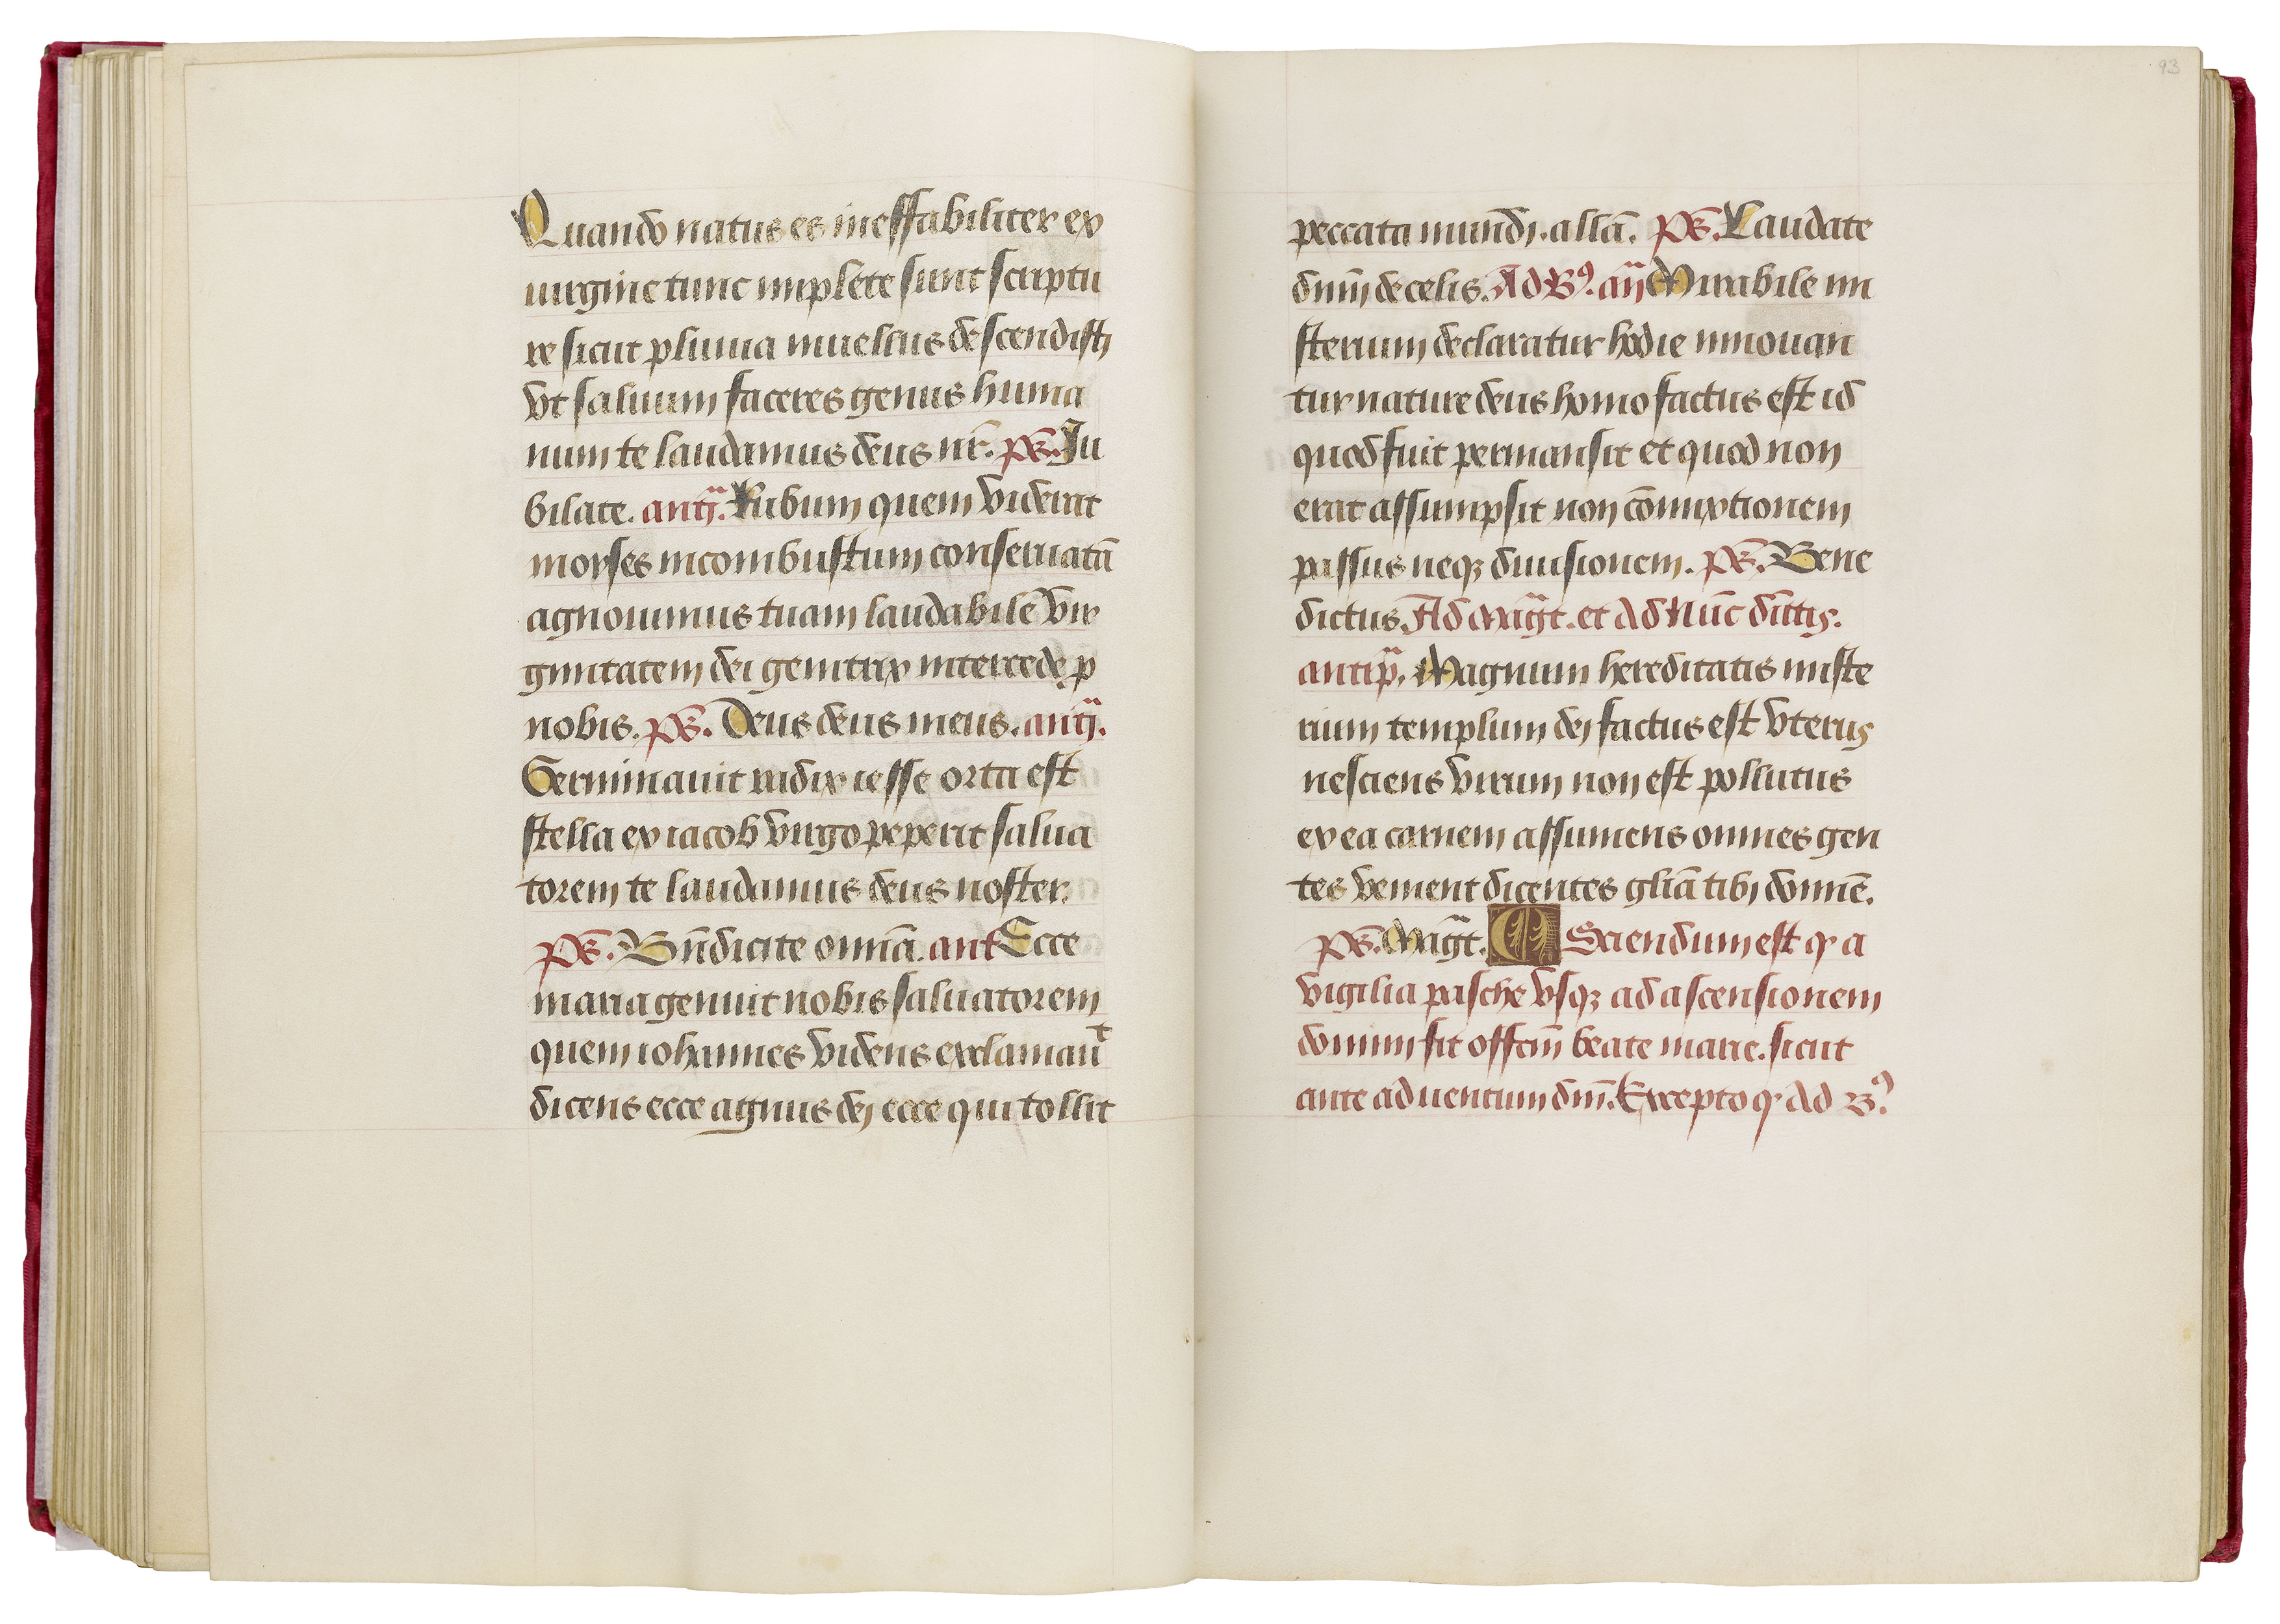 Quando natus es ineffabiliter ex
uirgine tunc implete sunt scriptu
re sicut pluuia in uellus descendisti
vt saluum faceres genus huma
num te laudamus deus nr̄. ps̄. Ju
bilate. antȷ̄. Rubum quem viderat
moyses incombustum conseruatā
agnouimus tuam laudabilē vir
ginitatem dei genitrix intercede p
nobis. ps̄. Deus deus meus. antȷ̄.
Germinauit radix iesse orta est
stella ex iacob virgo peperit salua
torem te laudamus deus noster.
ps̄. Bn̄dicite omīa. ant Ecce
maria genuit nobis saluatorem
quem iohannes videns exclamauᵗ
dicens ecce agnus dei ecce qui tollit
93
peccata mundi. allā. ps̄. Laudate
dnm̄ de celis. Ad Bꝰ. an̄ Mirabile mi
sterium declaratur hodie innouan
tur nature deus homo factus est id
quod fuit permansit et quod non
erat assumpsit non cōmixtionem
passus neqꝫ diuisionem. ps̄. Bene
dictus. Ad mag̃t. et Ad Nūc dīttis.
antip̄. Magnum hereditatis miste
rium templum dei factus est vterus
nesciens virum non est pollutus
ex ea carnem assumens omnes gen
tes venient dicentes gliā tibi dominē.
ps̄. Mag̃t. Sciendum est qꝫ a
vigilia pasche vsqꝫ ad ascensionem
domini fit offm̄ beate marie. sicut
ante aduentum dnī. Excepto qꝫ Ad Bꝰ.